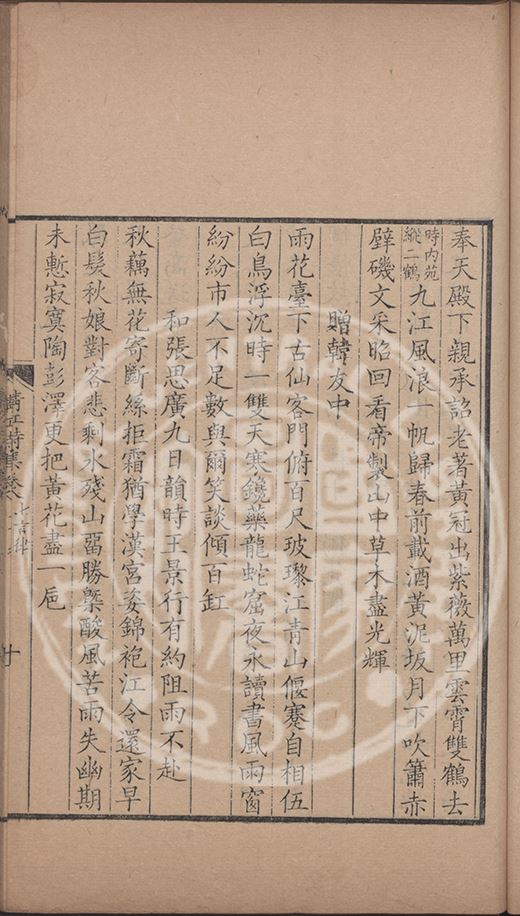 奉天殿下親承詔老著黃冠出紫薇萬里雲霄雙鶴去
時内苑
縱二鶴
九江風浪一帆歸春前載酒黃泥坂月下吹簫赤
壁磯文采昭回看帝製山中草木盡光輝
贈韓友中
雨花臺下古仙客門俯百尺玻瓈江青山偃蹇自相伍
白鳥浮沉時一雙天寒鑱藥龍蛇窟夜永讀書風雨窗
紛紛市人不足數與爾笑談傾百缸
和張思廣九日韻時王景行有約阻雨不赴
秋藕無花寄斷絲拒霜猶學漢宮姿錦袍江令還家早
白髮秋娘對客悲剩水殘山留勝槩酸風苦雨失幽期
未慙寂寞陶彭澤更把黃花盡一巵
七言律
十